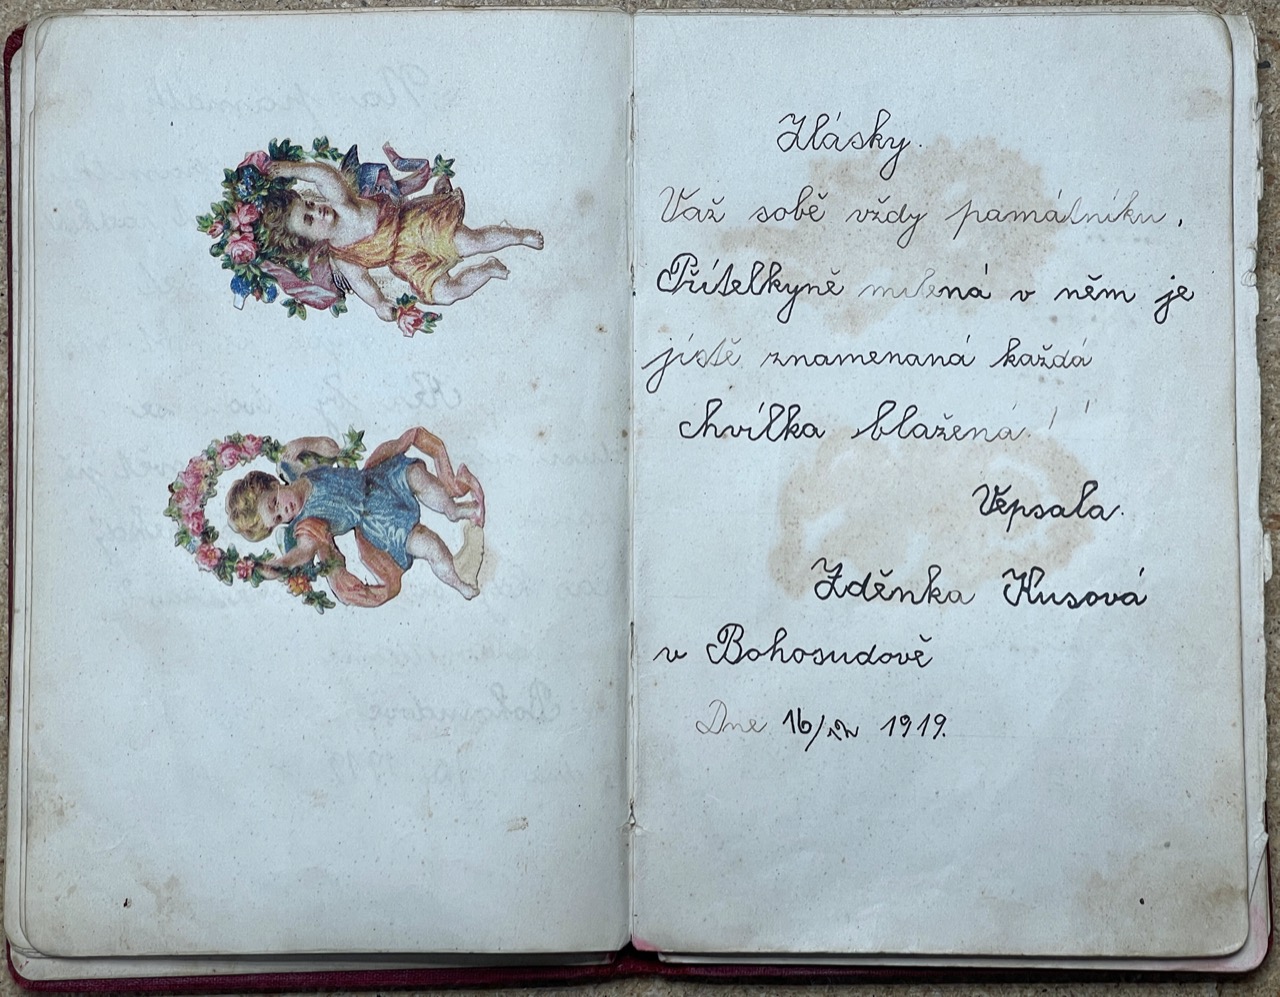 Hlásky.
Važ sobě vždy památníku,
Přítelkyně milená v něm je
jistě znamenaná každá
chvílka blažená!
Vepsala.
Zděnka Kusová
v Bohosudově
Dne 16/12 1919.